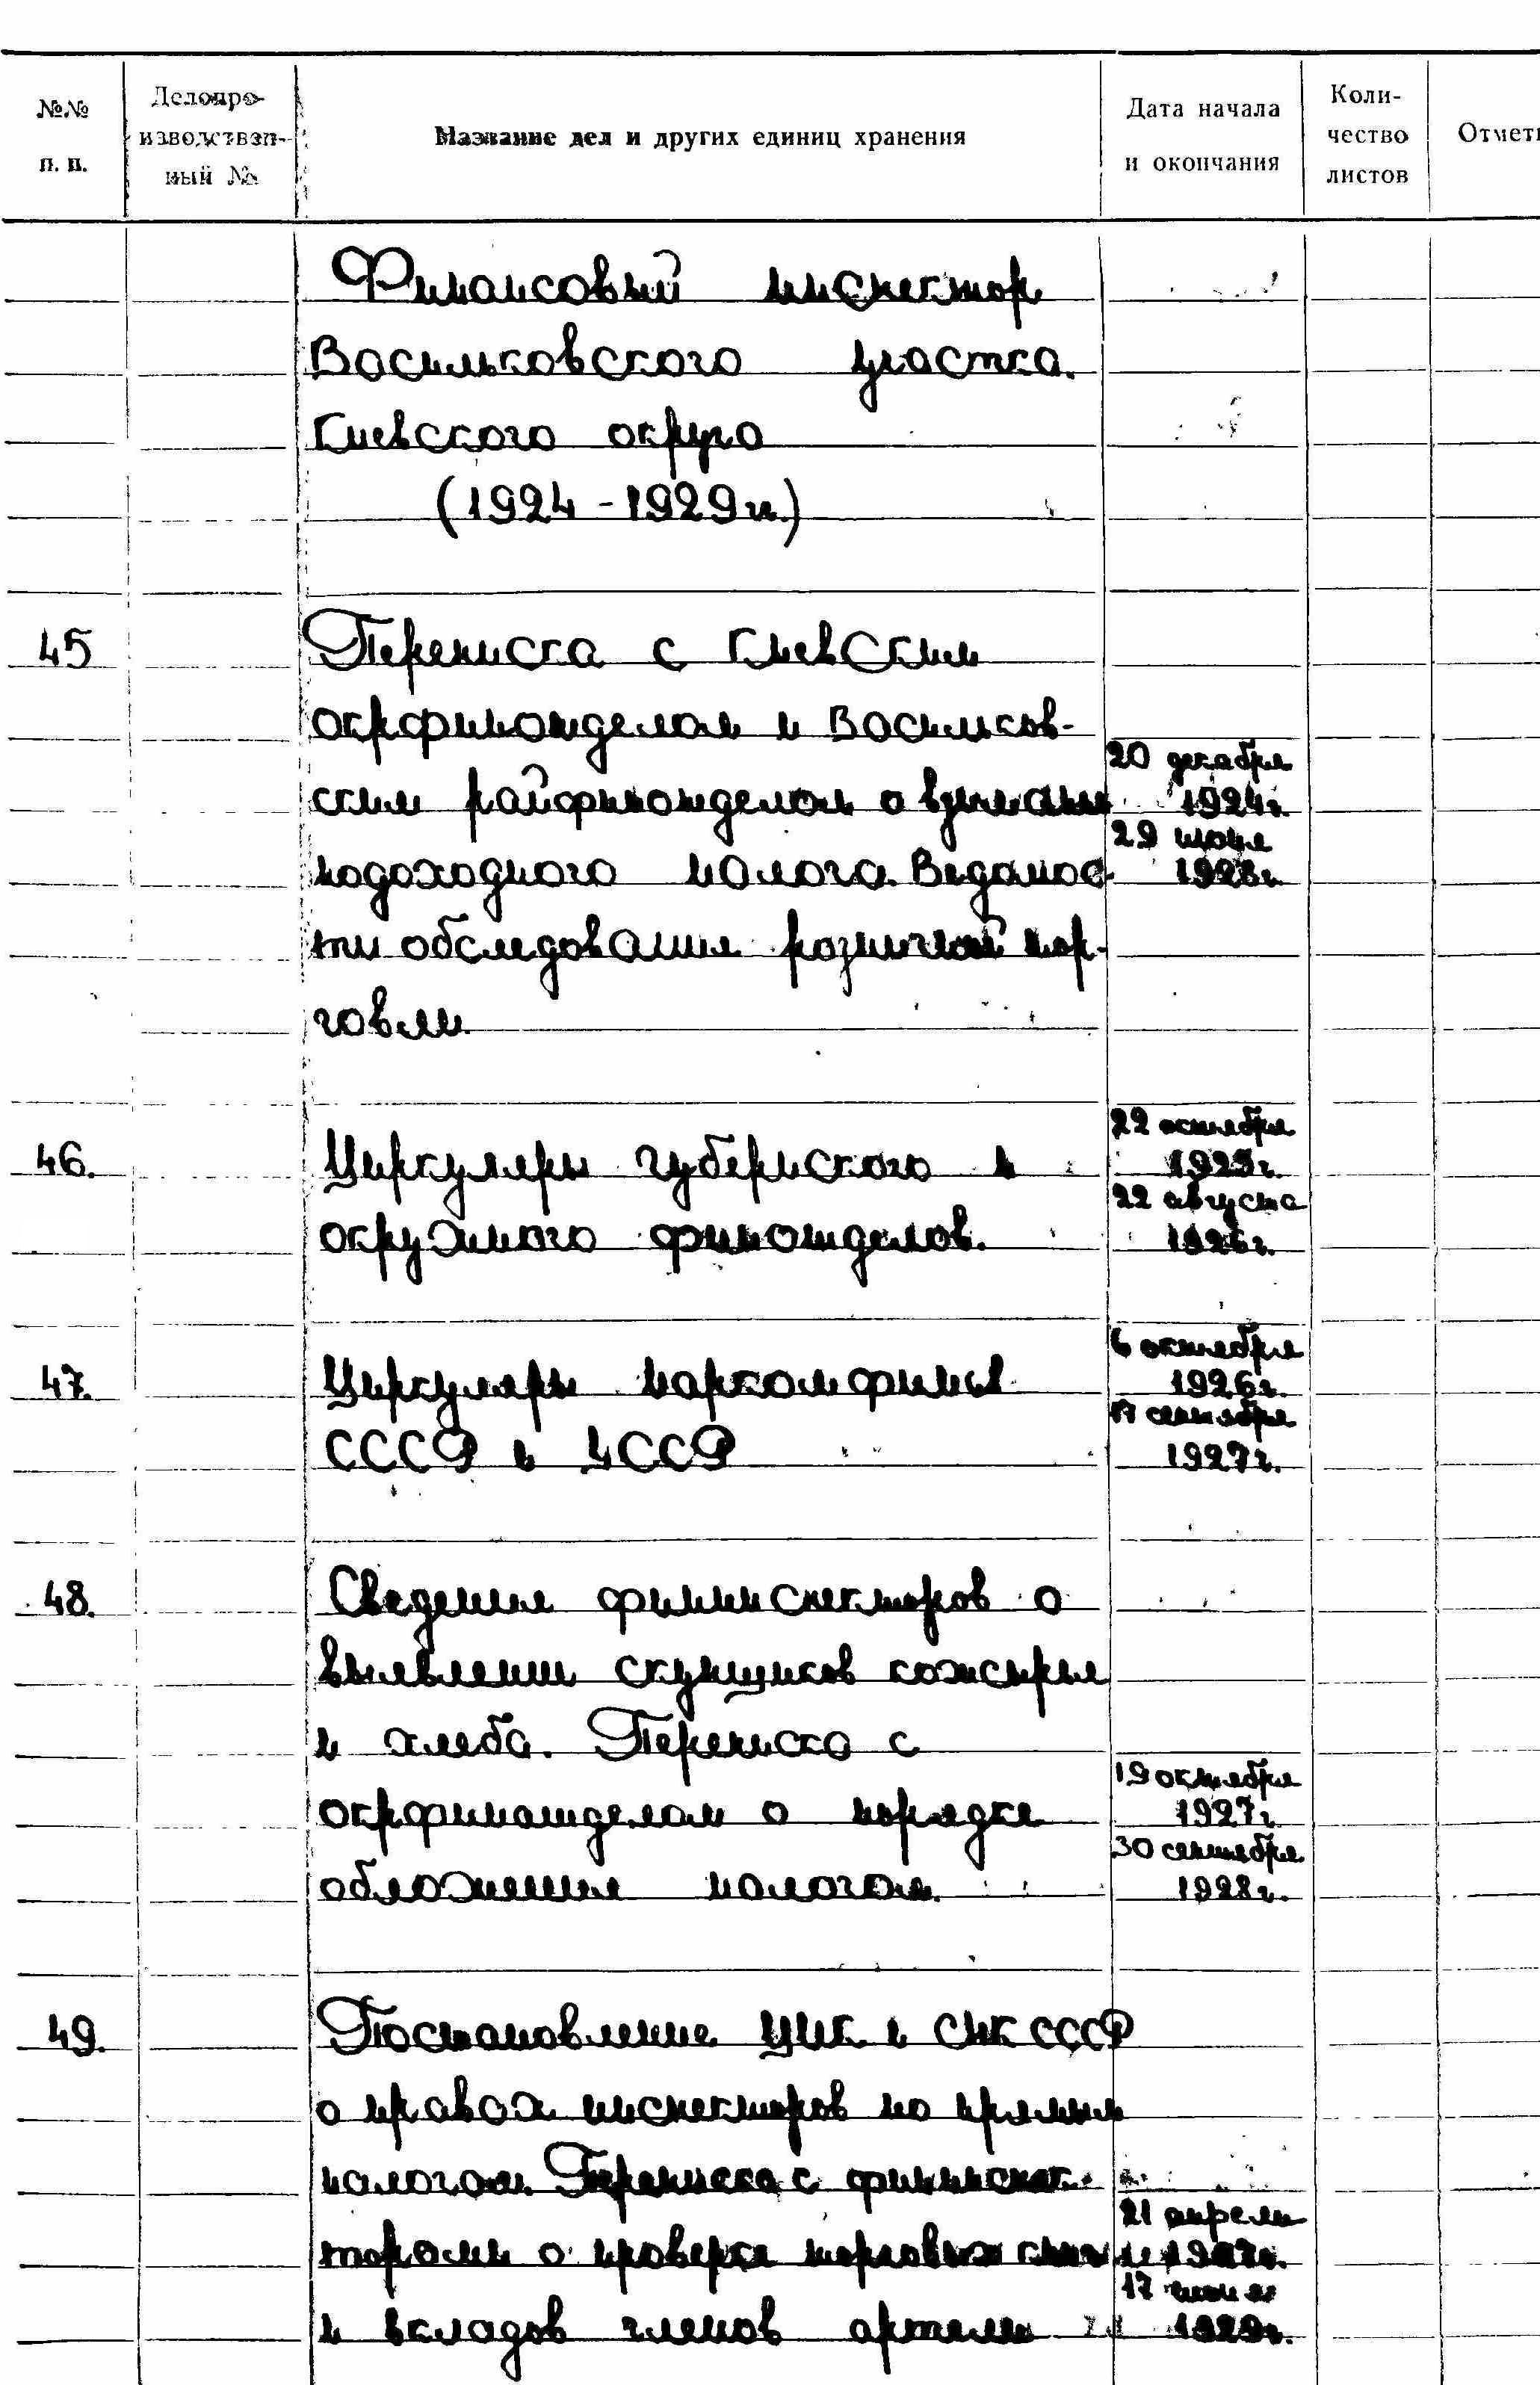 №№ п. п.
Делопроизводственный №
Название дел и других единиц хранения
Дата начала и окончания
Коли-
чество
листов
Отмет
Финансовый инспектор
Васильковского участка
Киевского округа
(1924-1929 гг.)
45
Переписка с Киевским
окрфинотделом и Васильков-
20 декабря
ским райфинотделом о взимании
1924г.
29 июня
подоходного налога. Ведомос-
1928г.
ти обследования розничной тор-
говли
22 октября
46.
Циркуляры губернского и
1925г.
22 августа
окружного финотделов.
1926г.
6 октября
47.
Циркуляры наркомфинов
1926г.
17 сентября
СССР и УССР
1927г.
48.
Сведения фининспекторов о
выявлении скупщиков кожсырья
и хлеба. Переписка с
19 октября
окрфинотделом о порядке
1927г.
30 сентября
обложения налогом.
1928г.
49.
Постановление ЦИК и СНК СССР
о правах инспекторов по прямым
налогам. Переписка с фининспек-
21 апреля
торами о проверке торговых книг
17 июня
и вкладов членов артели
1929г.